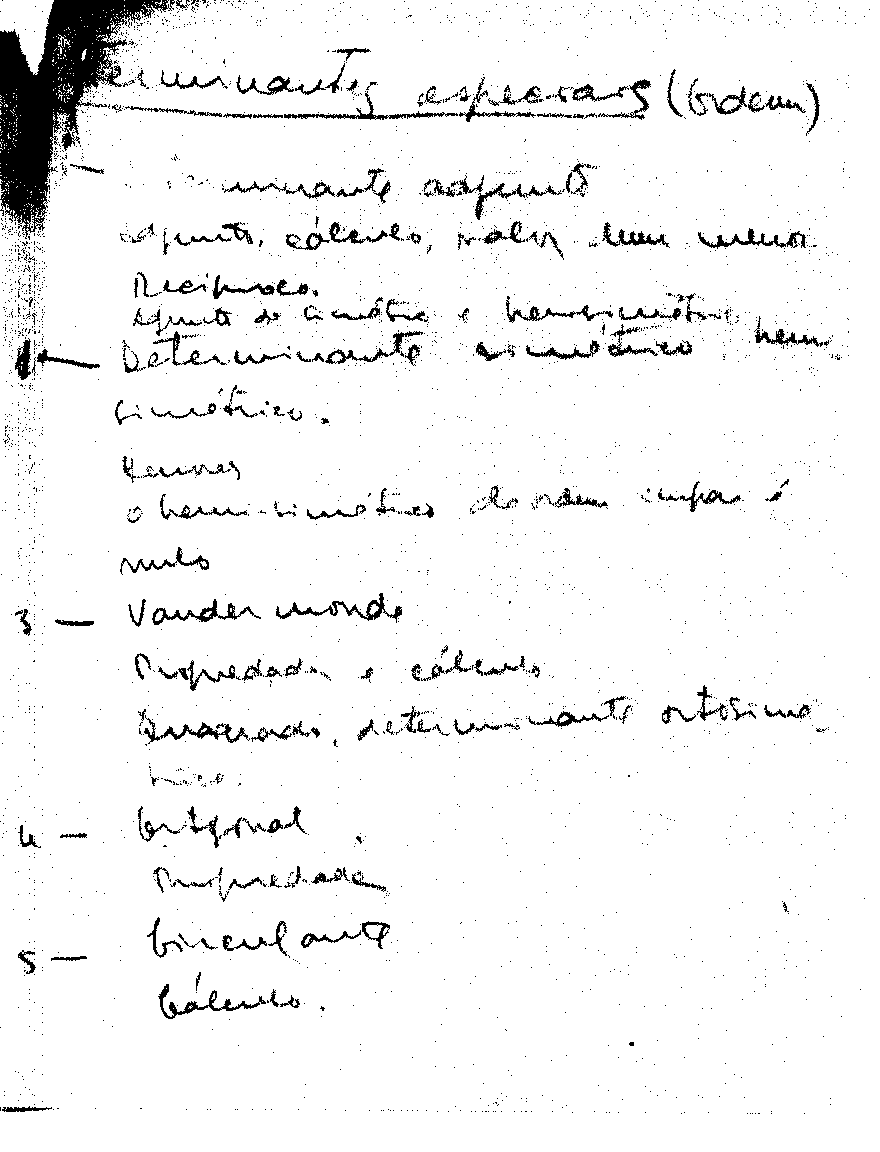 terminantes especiais (Ordem)
— minante adjunto
adjunto, cálculo, valor, menor
Recíproco.
Adjunto do simétrico e hemisimétrico
— Determinante simétrico, hemi-
simétrico.
Menores
o hemi-simétrico de ordem impar é
nulo
3 — Vandermonde
Propriedades e cálculo
Quadrado, determinante ortosimé-
trico.
4 — Ortogonal
Propriedades
5 — Circulante
Cálculo.